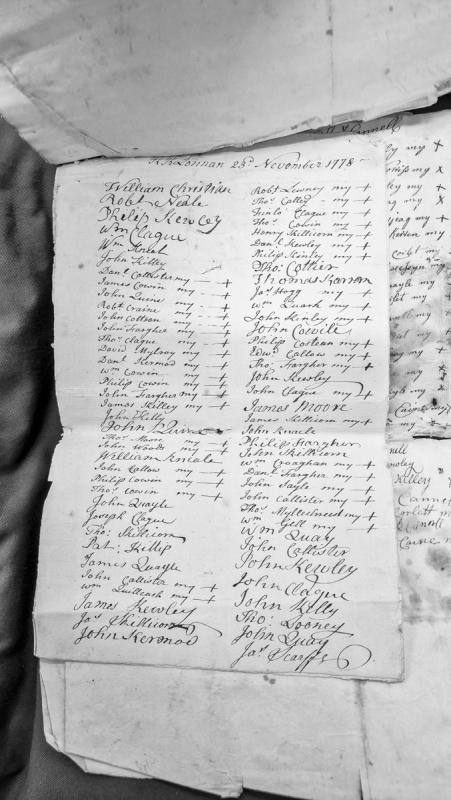 Kk Lonnan 24d. November 1778
William Christian
Robt Neale
Philip Kewley
Wm Clague
Wm Kneal
John Killey
Danl Callister my +
James Cowin my +
John Quine my +
Robt Craine my +
John Cottson my +
John Fargher my +
Thos Clague my +
David Mylroy my +
Danl Kermod my +
Wm Cowin my +
Philip Cowin my +
John Fargher my +
James Killey my +
John Killy
John Quine
Thos Moore my +
John Woods my +
William Kneale
John Callow my +
Philip Cowin my +
Thos Cowin my +
John Quayle
Joseph Clague
Thos: Skillicorn
Pat: Killip
James Quayle
John Callister my +
Wm Quilleash my +
James Kewley
Jas Skillicorn
John Kermod
Robt Lewney my +
Thos Calley my +
Finlo Clague my +
Thos Cowin my +
Henry Skillicorn my +
Danl Kewley my +
Philip Kinley my +
Thos: Collier
Thomas Karran
Hogg my +
Wm Quark my +
John Kinley my +
John Cowile
Philip Costean my +
Edwd Callow my +
Thos Fargher my +
John Kewley
John Clague my +
James Moore
James Skillicorn my +
John Kneale
Philip Fargher
John Skillicorn
Wm Croaghan my +
Danl Fargher my +
John Sayle my +
John Callister my +
Thos Mylechreest my +
Wm Gell my +
Wm Quay
John Callister
John Kewley
John Clague
John Killy
Thos: Looney
John Quay
Jas. Scarff